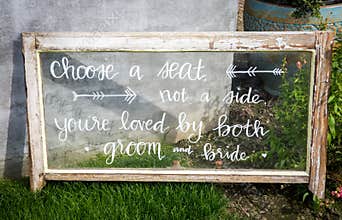 Choose a seat,
not a side
you're loved by both
groom and bride